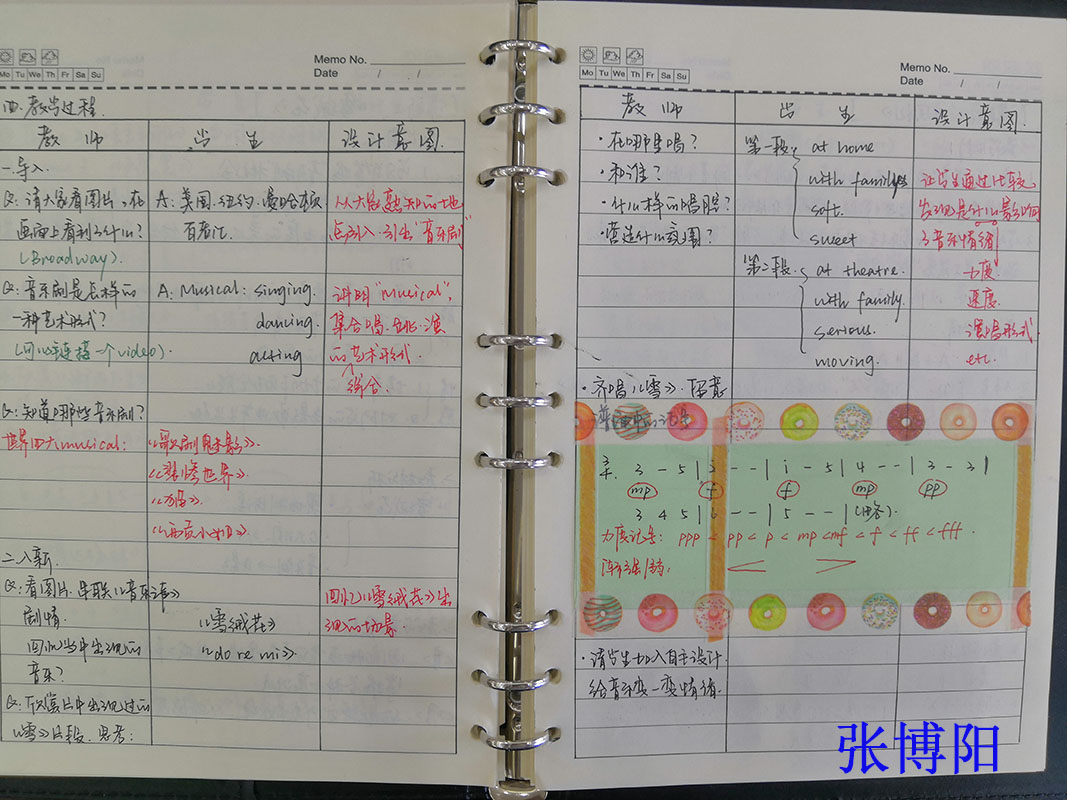 Memo No.
Mo Tu We Th Fr Sa Su
Date / /
四.教学过程.
教 师 学 生 设计意图.
一.导入.
Q: 请大家看图片,在 A: 美国.纽约.曼哈顿 从大家熟知的地
画面上看到了什么? 百老汇. 点引入.引出"音乐剧"
(Broadway).
Q: 音乐剧是怎样的 A: Musical: singing. 讲明"Musical",
一种艺术形式? dancing. 集合唱.跳.演
(可以链接一个video). acting 的艺术形式.
综合.
Q: 知道哪些音乐剧?
世界四大musical: 《歌剧魅影》.
《悲惨世界》.
《猫》.
《西贡小姐》.
二.入新.
Q: 看图片.串联《音乐之声》 回忆《雪绒花》出
剧情. 《雪绒花》 现的场景.
回忆当中出现的 《do re mi》.
音乐?
Q: 欣赏片中出现过的
《雪》片段.思考:
Memo No.
Mo Tu We Th Fr Sa Su
Date / /
教 师 学 生 设计意图.
·在哪里唱? 第一段 at home
·和谁? with family 让学生通过比较,
·什么样的唱腔? soft. 发现是什么影响
·营造什么氛围? sweet 了音乐情绪
第二段. at theatre. 力度.
with family. 速度.
serious. 演唱形式
moving. etc.
·齐唱《雪》.留意
3 - 5 | - - | i - 5 | 4 - - | 3 - 3 |
mp f f mp pp
3 4 5 | - - | 5 - - | (略).
力度记号: ppp < pp < p < mp < mf < f < ff < fff.
渐强/弱: < >
·请学生加入自主设计.
给音乐变一变情绪.
张博阳